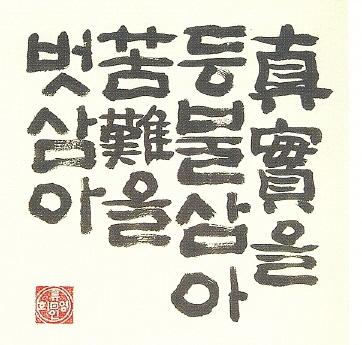 真實을
등불삼아
苦難을
벗삼아